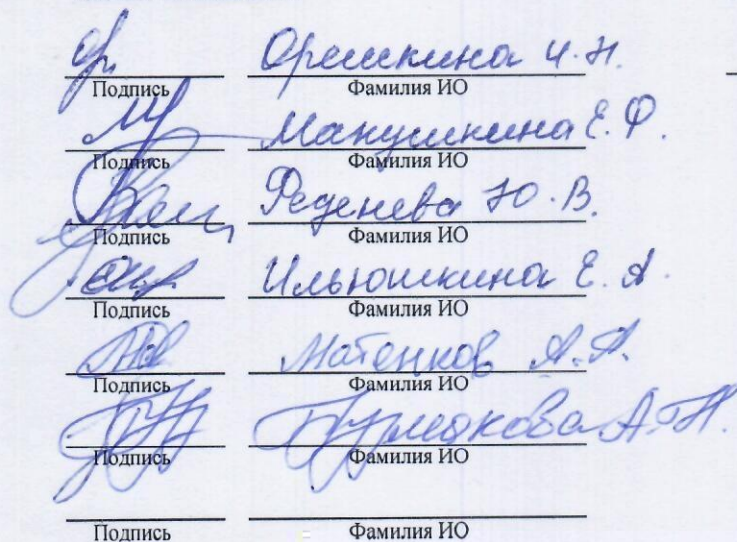 Орешкина И.Н.
Подпись Фамилия ИО
Манушкина Е.Ф.
Подпись Фамилия ИО
Феденева Ю.В.
Подпись Фамилия ИО
Ильюшкина Е.А.
Подпись Фамилия ИО
Матенков А.А.
Подпись Фамилия ИО
А.Н.
Подпись Фамилия ИО
Подпись Фамилия ИО